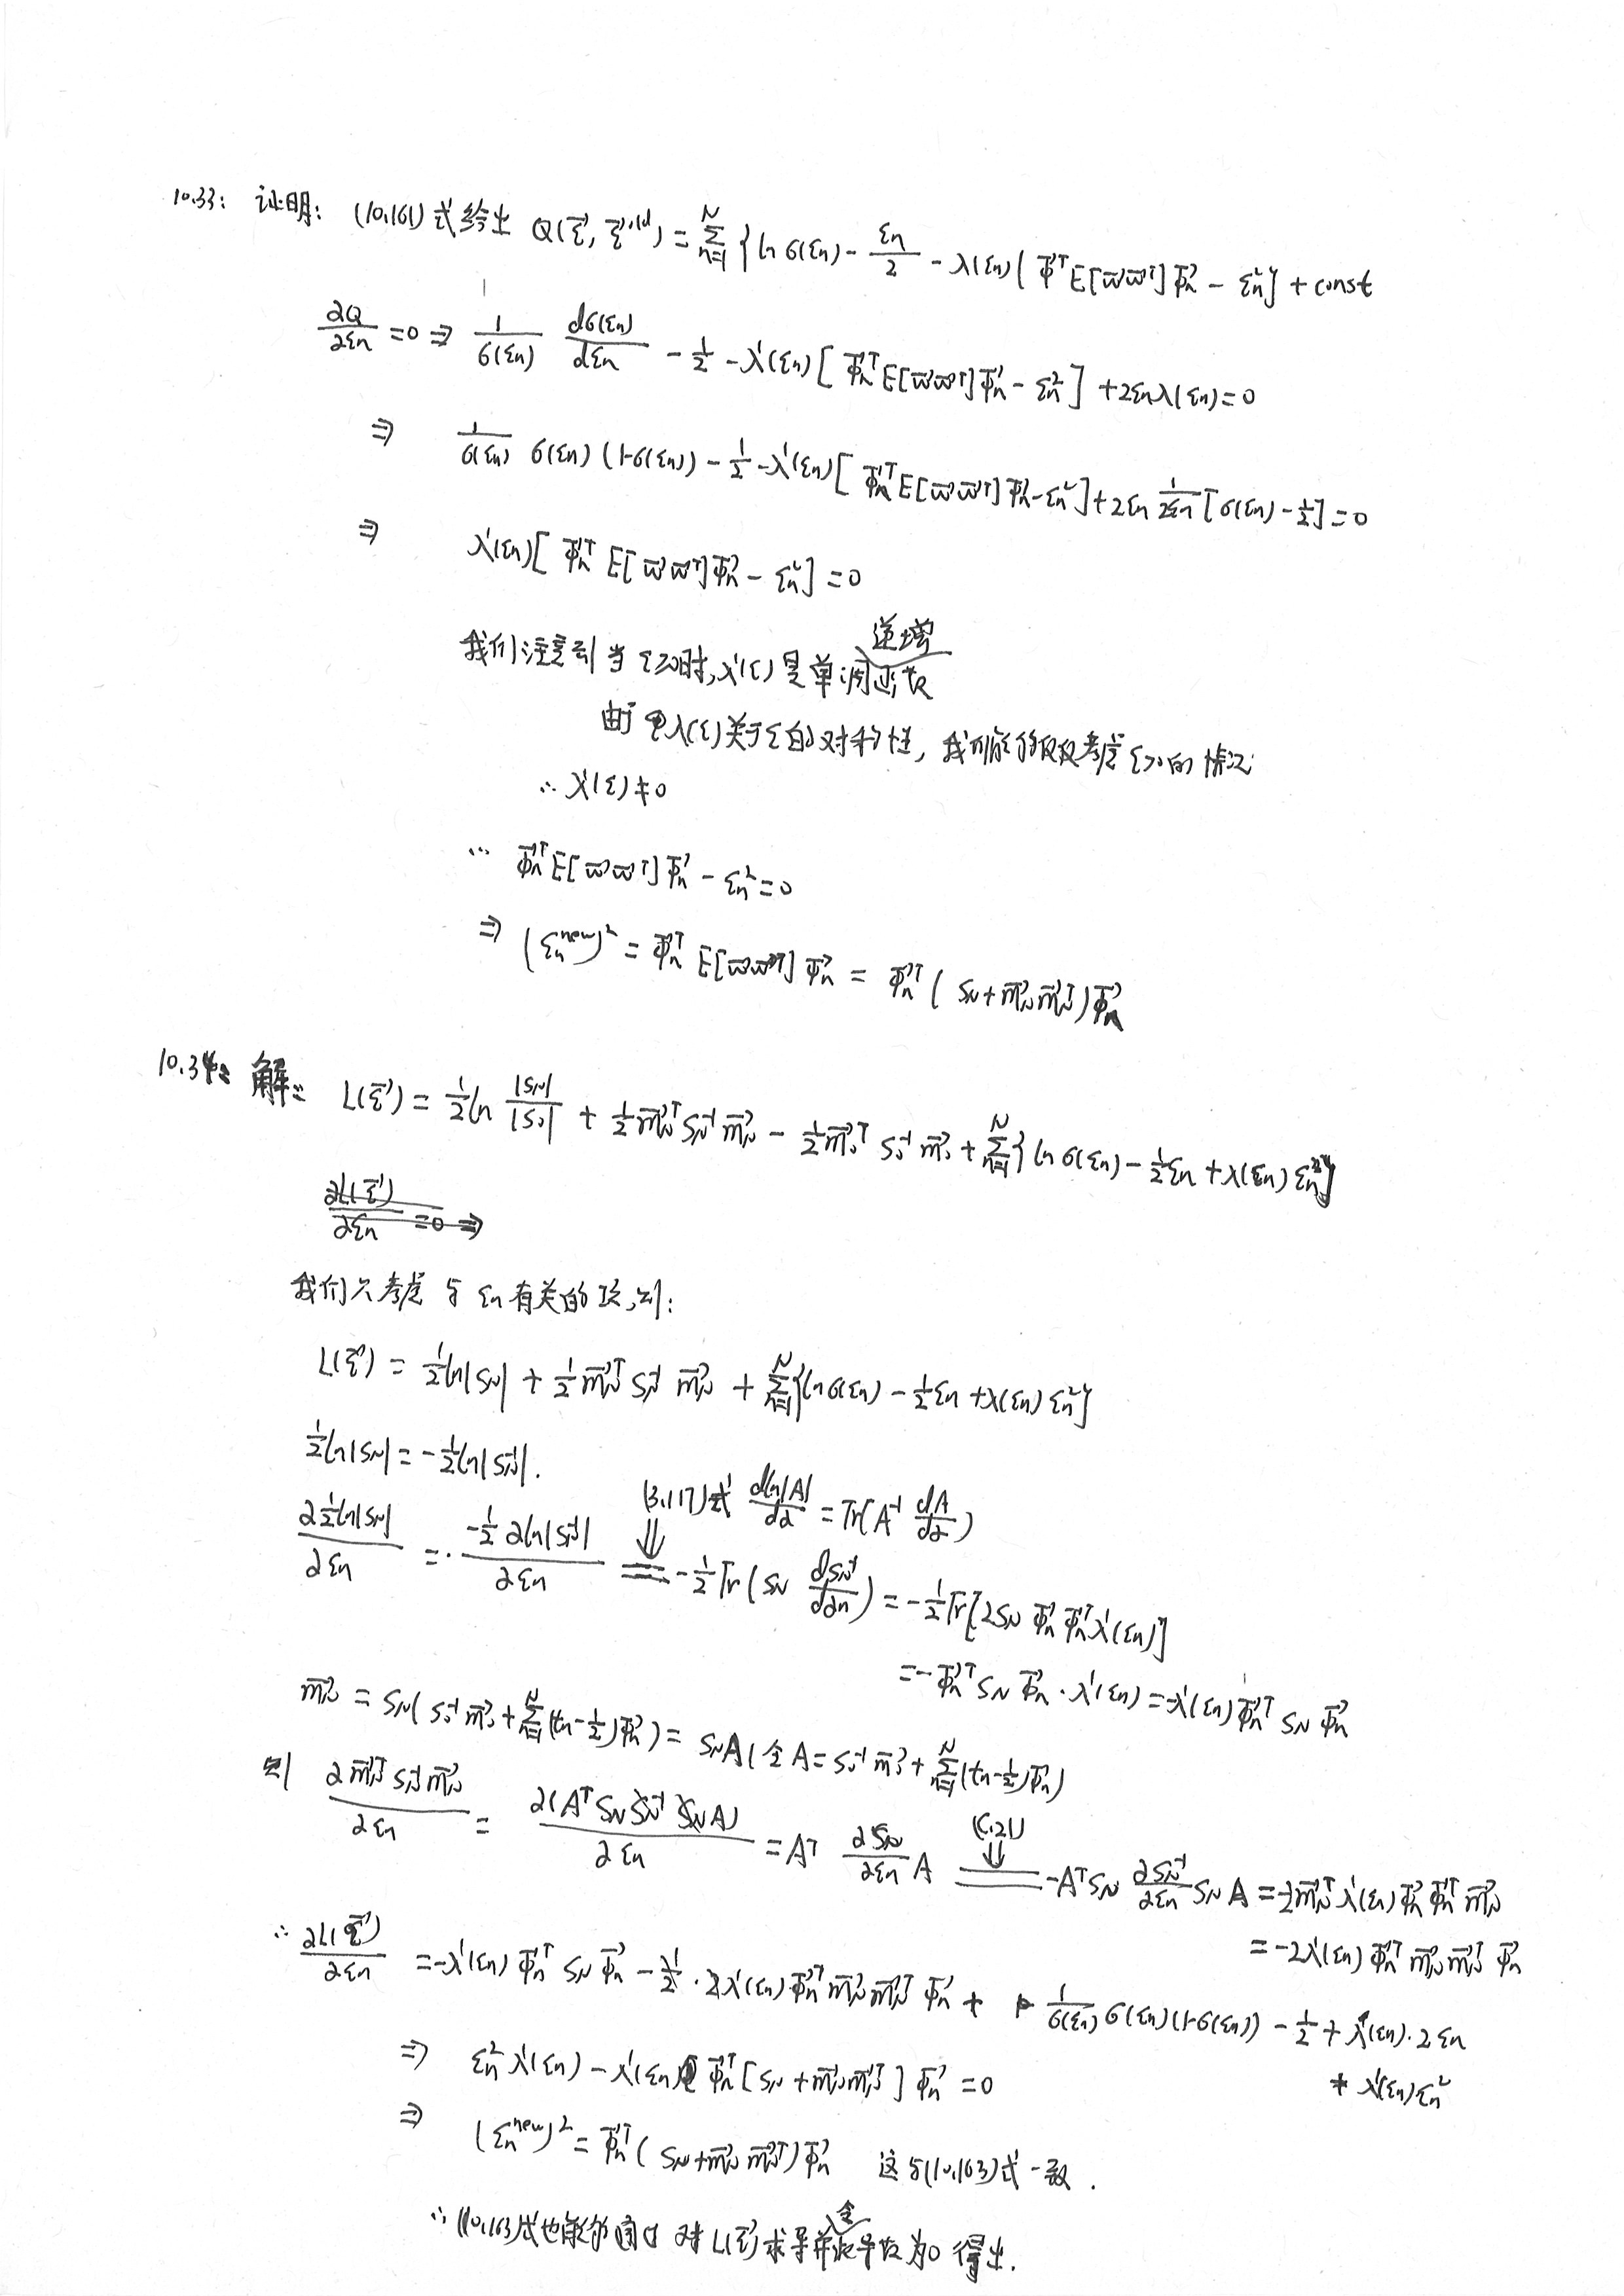 10.33: 证明: (10.161)式给出 Q(ξ⃗, ξ⃗ᵒˡᵈ) = Σ_{n=1}^{N} { ln σ(ξn) - ξn/2 - λ(ξn) [ Φ⃗ᵀ E[w⃗w⃗ᵀ] Φ⃗n - ξn² } + const
∂Q/∂ξn = 0 ⇒ 1/σ(ξn) dσ(ξn)/dξn - 1/2 - λ'(ξn) [ Φ⃗nᵀ E[w⃗w⃗ᵀ] Φ⃗n - ξn² ] + 2ξnλ(ξn) = 0
⇒ 1/σ(ξn) σ(ξn) (1-σ(ξn)) - 1/2 - λ'(ξn) [ Φ⃗nᵀ E[w⃗w⃗ᵀ] Φ⃗n - ξn² ] + 2ξn 1/2ξn [σ(ξn) - 1/2] = 0
⇒ λ'(ξn) [ Φ⃗nᵀ E[w⃗w⃗ᵀ] Φ⃗n - ξn² ] = 0
递增
我们注意到当 ξ≥0时, λ'(ξ) 是单调
由于 λ(ξ)关于ξ的对称性, 我们能够仅仅考虑 ξ>0的情况
∴ λ'(ξ) ≠ 0
∴ Φ⃗nᵀ E[w⃗w⃗ᵀ] Φ⃗n - ξn² = 0
⇒ (ξnⁿᵉʷ)² = Φ⃗nᵀ E[w⃗w⃗ᵀ] Φ⃗n = Φ⃗nᵀ ( S_N + m⃗_N m⃗_Nᵀ ) Φ⃗n
10.34: 解: L(ξ⃗) = 1/2 ln |S_N|/|S₀| + 1/2 m⃗_Nᵀ S_N⁻¹ m⃗_N - 1/2 m⃗₀ᵀ S₀⁻¹ m⃗₀ + Σ_{n=1}^{N} { ln σ(ξn) - 1/2 ξn + λ(ξn) ξn² }
∂L(ξ⃗)/∂ξn = 0 ⇒
我们只考虑与 ξn 有关的项, 则:
L(ξ⃗) = 1/2 ln|S_N| + 1/2 m⃗_Nᵀ S_N⁻¹ m⃗_N + Σ_{n=1}^{N} { ln σ(ξn) - 1/2 ξn + λ(ξn) ξn² }
1/2 ln|S_N| = -1/2 ln|S_N⁻¹|.
(3.117)式 dln|A|/dα = Tr(A⁻¹ dA/dα)
∂ 1/2 ln|S_N| / ∂ξn = -1/2 ∂ln|S_N⁻¹| / ∂ξn = -1/2 Tr( S_N dS_N⁻¹/dαn ) = -1/2 Tr[ 2S_N Φ⃗n Φ⃗nᵀ λ'(ξn) ]
= -Φ⃗nᵀ S_N Φ⃗n · λ'(ξn) = -λ'(ξn) Φ⃗nᵀ S_N Φ⃗n
m⃗_N = S_N ( S₀⁻¹ m⃗₀ + Σ_{n=1}^{N} (tn - 1/2) Φ⃗n ) = S_N A ( 令 A = S₀⁻¹ m⃗₀ + Σ_{n=1}^{N} (tn - 1/2) Φ⃗n )
则 ∂ m⃗_Nᵀ S_N⁻¹ m⃗_N / ∂ξn = ∂( Aᵀ S_N S_N⁻¹ S_N A ) / ∂ξn = Aᵀ ∂S_N/∂ξn A =(C.21)= -Aᵀ S_N ∂S_N⁻¹/∂ξn S_N A = -2 m⃗_Nᵀ λ'(ξn) Φ⃗n Φ⃗nᵀ m⃗_N
= -2λ'(ξn) Φ⃗nᵀ m⃗_N m⃗_Nᵀ Φ⃗n
∴ ∂L(ξ⃗)/∂ξn = -λ'(ξn) Φ⃗nᵀ S_N Φ⃗n - 1/2 · 2λ'(ξn) Φ⃗nᵀ m⃗_N m⃗_Nᵀ Φ⃗n + 1/σ(ξn) σ(ξn) (1-σ(ξn)) - 1/2 + λ(ξn) · 2ξn
+ λ'(ξn) ξn²
⇒ ξn² λ'(ξn) - λ'(ξn) Φ⃗nᵀ [ S_N + m⃗_N m⃗_Nᵀ ] Φ⃗n = 0
⇒ (ξnⁿᵉʷ)² = Φ⃗nᵀ ( S_N + m⃗_N m⃗_Nᵀ ) Φ⃗n 这与(10.163)式一致.
∴ (10.163)式也能够通过对 L(ξ⃗) 求导并令导数为0 得出.